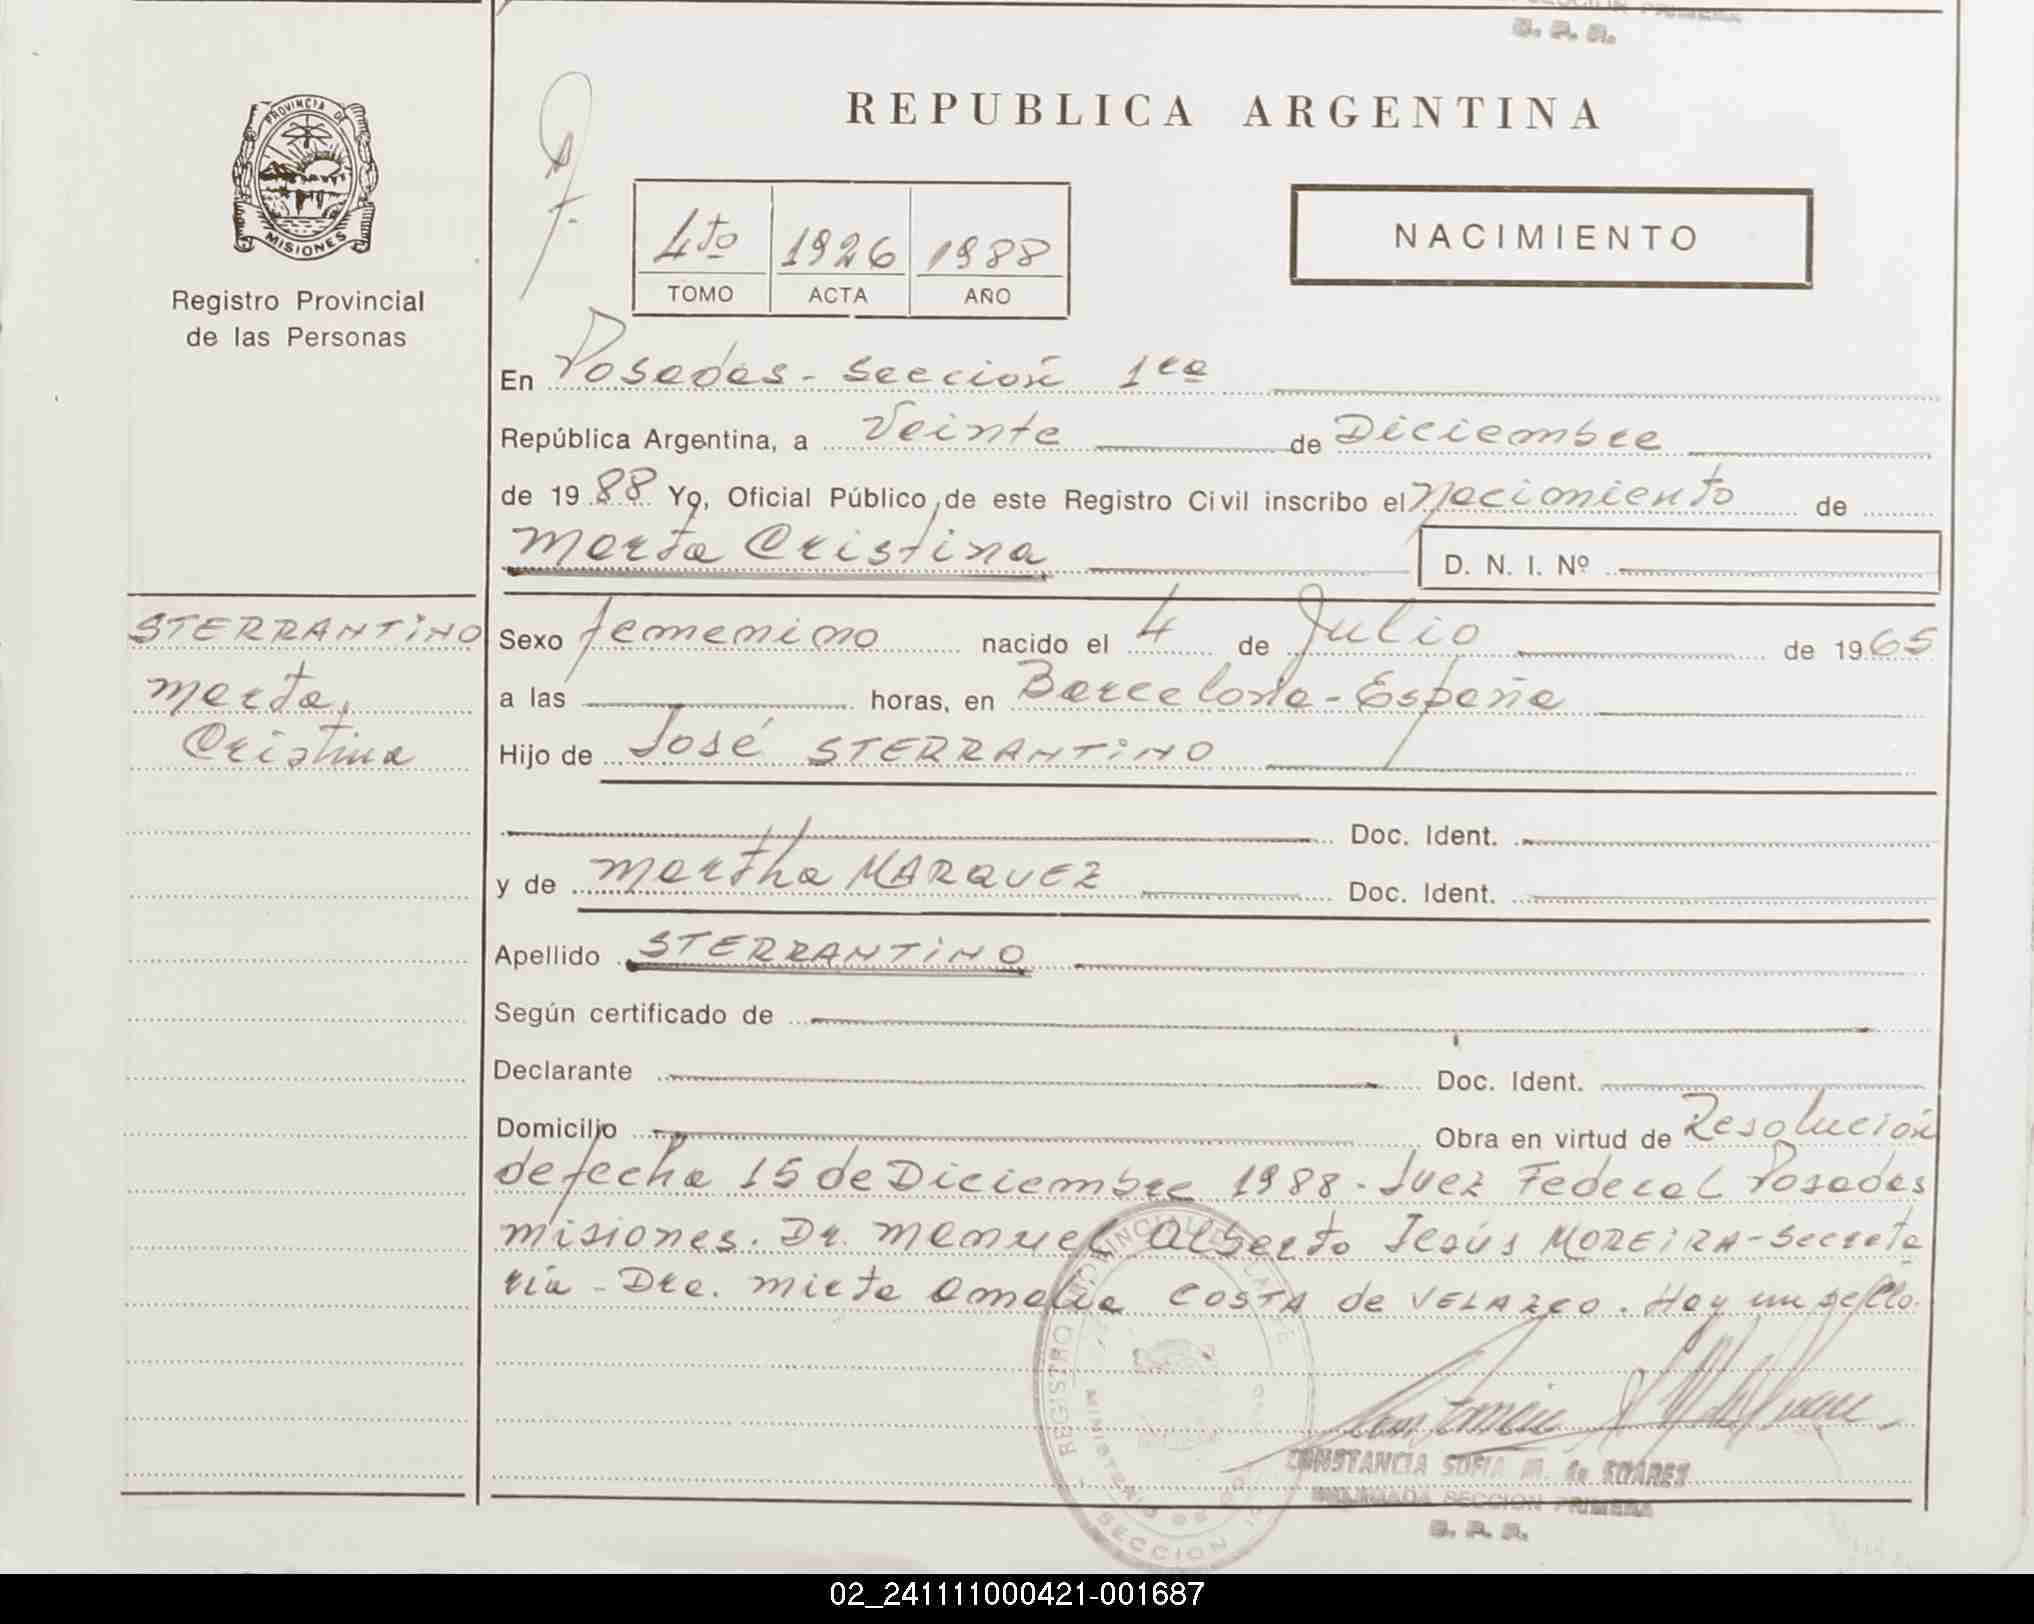 SECCION PRIMERA
R. P. P.
PROVINCIA DE
MISIONES
Registro Provincial
de las Personas
REPUBLICA ARGENTINA
4to 1926 1988
TOMO ACTA AÑO
NACIMIENTO
En Posadas - Sección 1ra
República Argentina, a Veinte de Diciembre
de 1988 Yo, Oficial Público, de este Registro Civil inscribo el Nacimiento de
Marta Cristina D. N. I. Nº
STERRANTINO
Marta,
Cristina
Sexo femenino nacido el 4 de Julio de 1965
a las horas, en Barcelona - España
Hijo de José STERRANTINO
Doc. Ident.
y de Martha MARQUEZ Doc. Ident.
Apellido STERRANTINO
Según certificado de
Declarante Doc. Ident.
Domicilio Obra en virtud de Resolución
de fecha 15 de Diciembre 1988 - Juez Federal Posadas
misiones. Dr. Manuel Alberto Jesús MOREIRA - Secreta
ría - Dra. Mirta Amalia COSTA de VELAZCO. Hay un sello.
REGISTRO PROVINCIAL DE LAS
MINISTERIO DE
SECCION
CONSTANCIA SOFIA M. de SUAREZ
SECCION PRIMERA
R. P. P.
02_241111000421-001687